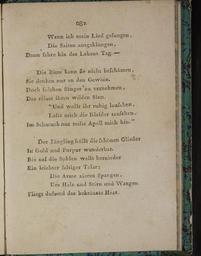 Wenn ich mein Lied gesungen,
Die Saiten ausgeklungen,
Dann fahre hin des Lebens Tag. —
Die Bitte kann sie nicht beschämen,
Sie denken nur an den Gewinn.
Doch solchen Sänger zu vernehmen,
Das reizet ihren wilden Sinn.
"Und wollt ihr ruhig lauschen,
Laßt mich die Kleider tauschen,
Im Schmuck nur reißt Apoll mich hin."
Der Jüngling hüllt die schönen Glieder
In Gold und Purpur wunderbar.
Bis auf die Sohlen wallt hernieder
Ein leichter faltiger Talar;
Die Arme zieren Spangen,
Um Hals und Stirn und Wangen
Fliegt duftend das bekränzte Haar.